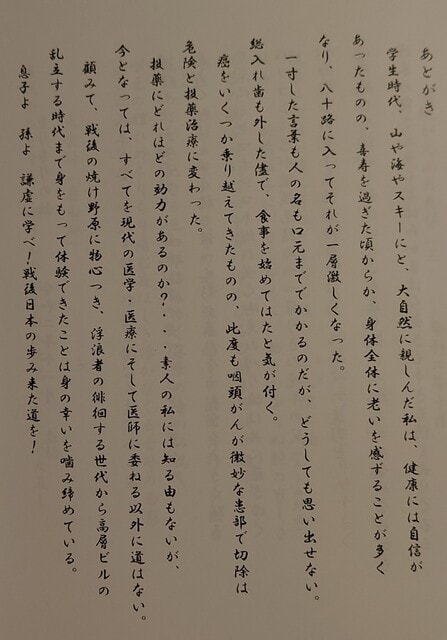 あとがき
学生時代、山や海やスキーにと、大自然に親しんだ私は、健康には自信が
あったものの、喜寿を過ぎた頃からか、身体全体に老いを感ずることが多く
なり、八十路に入ってそれが一層激しくなった。
一寸した言葉も人の名も口元まででかかるのだが、どうしても思い出せない。
総入れ歯も外した儘で、食事を始めてはたと気が付く。
癌をいくつか乗り越えてきたものの、此度も咽頭がんが微妙な患部で切除は
危険と投薬治療に変わった。
投薬にどれほどの効力があるのか?・・・素人の私には知る由もないが、
今となっては、すべてを現代の医学・医療にそして医師に委ねる以外に道はない。
顧みて、戦後の焼け野原に物心つき、浮浪者の徘徊する世代から高層ビルの
乱立する時代まで身をもって体験できたことは身の幸いを噛み締めている。
息子よ 孫よ 謙虚に学べ!戦後日本の歩み来た道を!